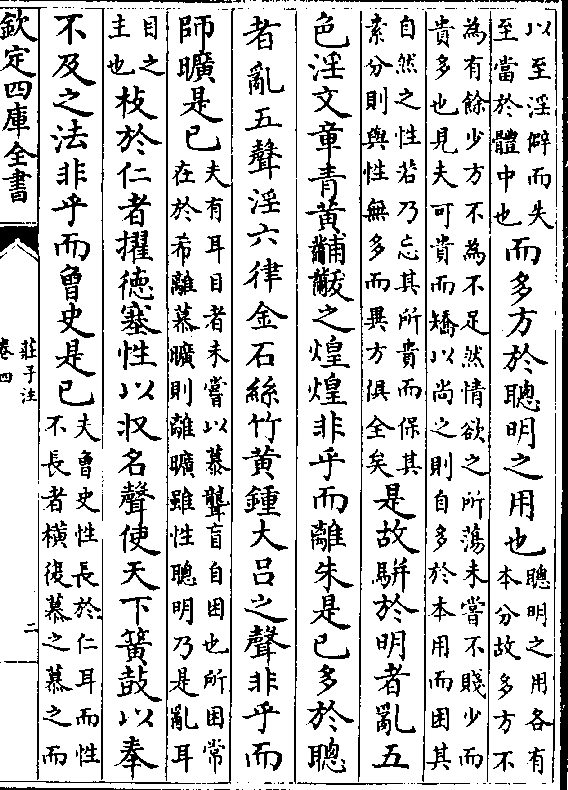 以至淫僻而失
至當於體中也
而多方於聰明之用也
聰明之用各有
本分故多方不
為有餘少方不為不足然情欲之所蕩未嘗不賤少而
貴多也見夫可貴而矯以尚之則自多於本用而困其
自然之性若乃忘其所貴而保其
索分則與性無多而異方俱全矣
是故駢於明者亂五
色淫文章青黃黼黻之煌煌非乎而離朱是已多於聰
者亂五聲淫六律金石絲竹黃鍾大呂之聲非乎而
師曠是已
夫有耳目者未嘗以慕聾盲自困也所困常
在於希離慕曠則離曠雖性聰明乃是亂耳
目之
主也
枝於仁者擢德塞性以収名聲使天下簧鼓以奉
不及之法非乎而曾史是已
夫曾史性長於仁耳而性
不長者橫復慕之慕之而
欽定四庫全書
莊子注
卷四
二